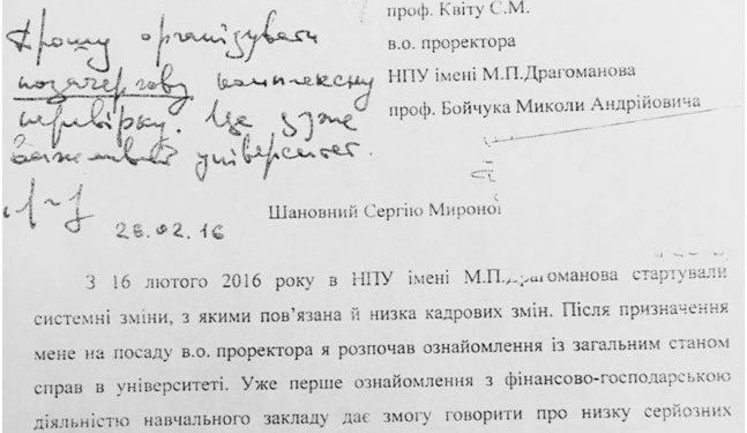 проф. Квіту С.М.
в.о. проректора
НПУ імені М.П.Драгоманова
проф. Бойчука Миколи Андрійовича
Прошу організувати
позачергову комплексну
перевірку. Це дуже
важливий університет.
26.02.16
Шановний Сергію Мироно
З 16 лютого 2016 року в НПУ імені М.П.Драгоманова стартували
системні зміни, з якими пов'язана й низка кадрових змін. Після призначення
мене на посаду в.о. проректора я розпочав ознайомлення із загальним станом
справ в університеті. Уже перше ознайомлення з фінансово-господарською
діяльністю навчального закладу дає змогу говорити про низку серйозних